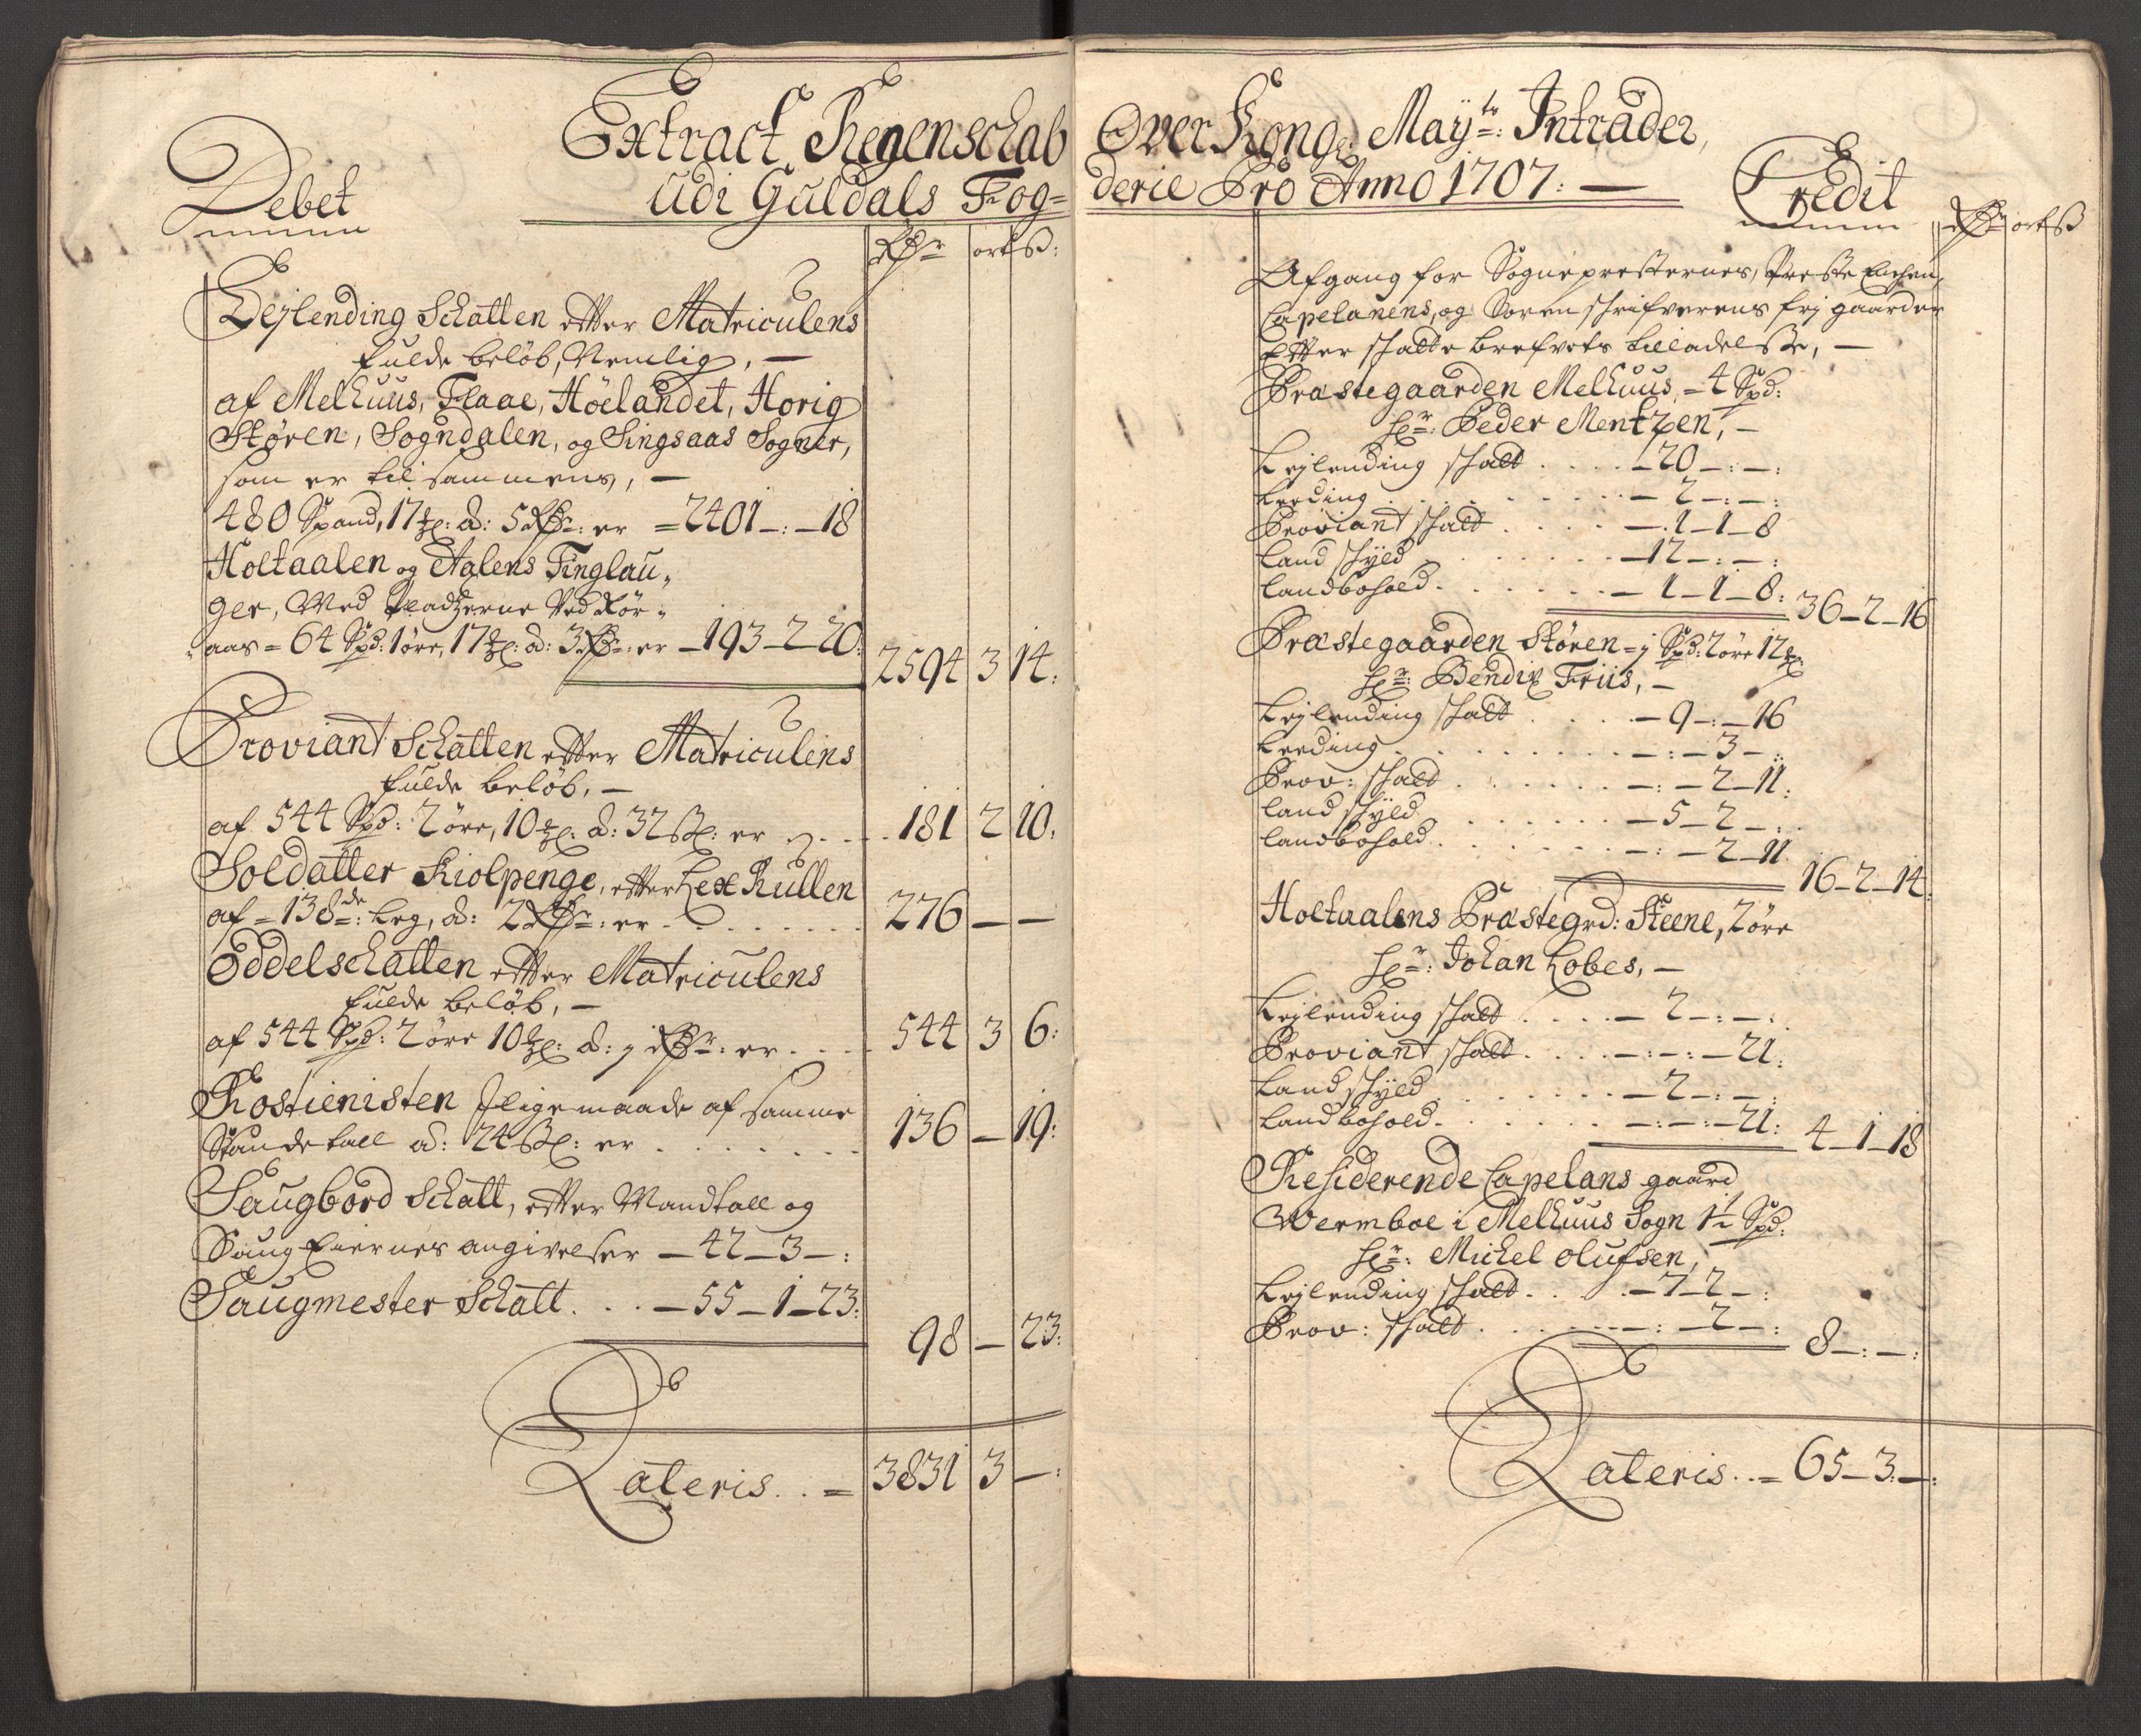 Extract Regenschab
udi Guldals Fog=
Debet
Rdr ort ß:
Lejlending Schatten etter Matriculens
fulde beløb, Nemlig, —
af Melhuus, Flaae, Høelandet, Horig
Støren, Sogndalen, og Singsaas Sogner,
som er til sammens, —
480 Spand, 17 mkl: à: 5 Rdr: er =2401-:-18
Holtaalen og Aalens Tinglau„
ger, Med Pladzerne Ved Rör„
„aas = 64 Spd: 1 øre, 17 mkl: à: 3 Rdr: er -193-2-20:
2594 3 14:
Proviant Schatten etter Matriculens
fulde beløb, —
af 544 Spd: 2 øre, 10 mkl: à: 32 ßl: er . . . 181 2 10:
Soldatter Kiolpenge, etter Lex Rullen
af = 138de: Leg, à: 2 Rdr: er . . . . . . 276 — —
Oddelschatten etter Matriculens
fulde beløb, —
af 544 Spd: 2 øre 10 mkl: à: j Rdr: er . . . 544 3 6:
Rostienisten Jligemaade af samme
Spande tall à: 24 ßl: er . . . . . . . 136 — 19:
Saugbord Schatt, etter Mandtall og
Saug Eiernes angivelser — 42-3-:
Saugmester Schatt . . . — 55-1-23:
98 — 23:
Lateris . . = 3831 3 —:
Over Kongl: Mayts: Intrader,
derie Pro Anno 1707: —
Credit
Rdr ort ß
Afgang for Sognepresternes, Preste Enchen,
Capelanens, og Sorenschrifverens frj gaarder
Etter schatte brefvets tilladelße, —
Præstegaarden Melhuus, = 4 Spd:
Hr: Peder Mentzen, —
Lejlending schatt . . . . -20-:-:
Leeding . . . . . . . . -2-:-:
Proviant schatt . . . . -1-1-8
Landschyld . . . . . . -12-:-:
Landbohold . . . . . . -1-1-8: 36-2-16
Præstegaarden Støren = j Spd: 2 øre 12 mkl:
Hr: Bendix Friis, —
Lejlending schatt . . . . -9-:-16
Leeding . . . . . . . . -:-3-:
Prov: schatt . . . . . . -:-2-11:
Landschyld . . . . . . -5-2-:
Landbohold . . . . . . -:-2-11. 16-2-14:
Holtaalens Præstegrd: Steene, 2 øre
Hr: Johan Lobes, —
Lejlending schatt . . . . -2-:-:
Proviant schatt . . . . -:-:-21:
Landschyld . . . . . . -2-:-:
Landbohold . . . . . . -:-:-21: 4-1-18
Residerende Capelans gaard
Wermboe i Melhuus Sogn 1½ Spd:
Hr: Michel Olufsen,
Lejlending schatt . . . -7-2-:
Prov: schatt . . . . . -:-2-: 8-:-:
Lateris . . = 65-3-: